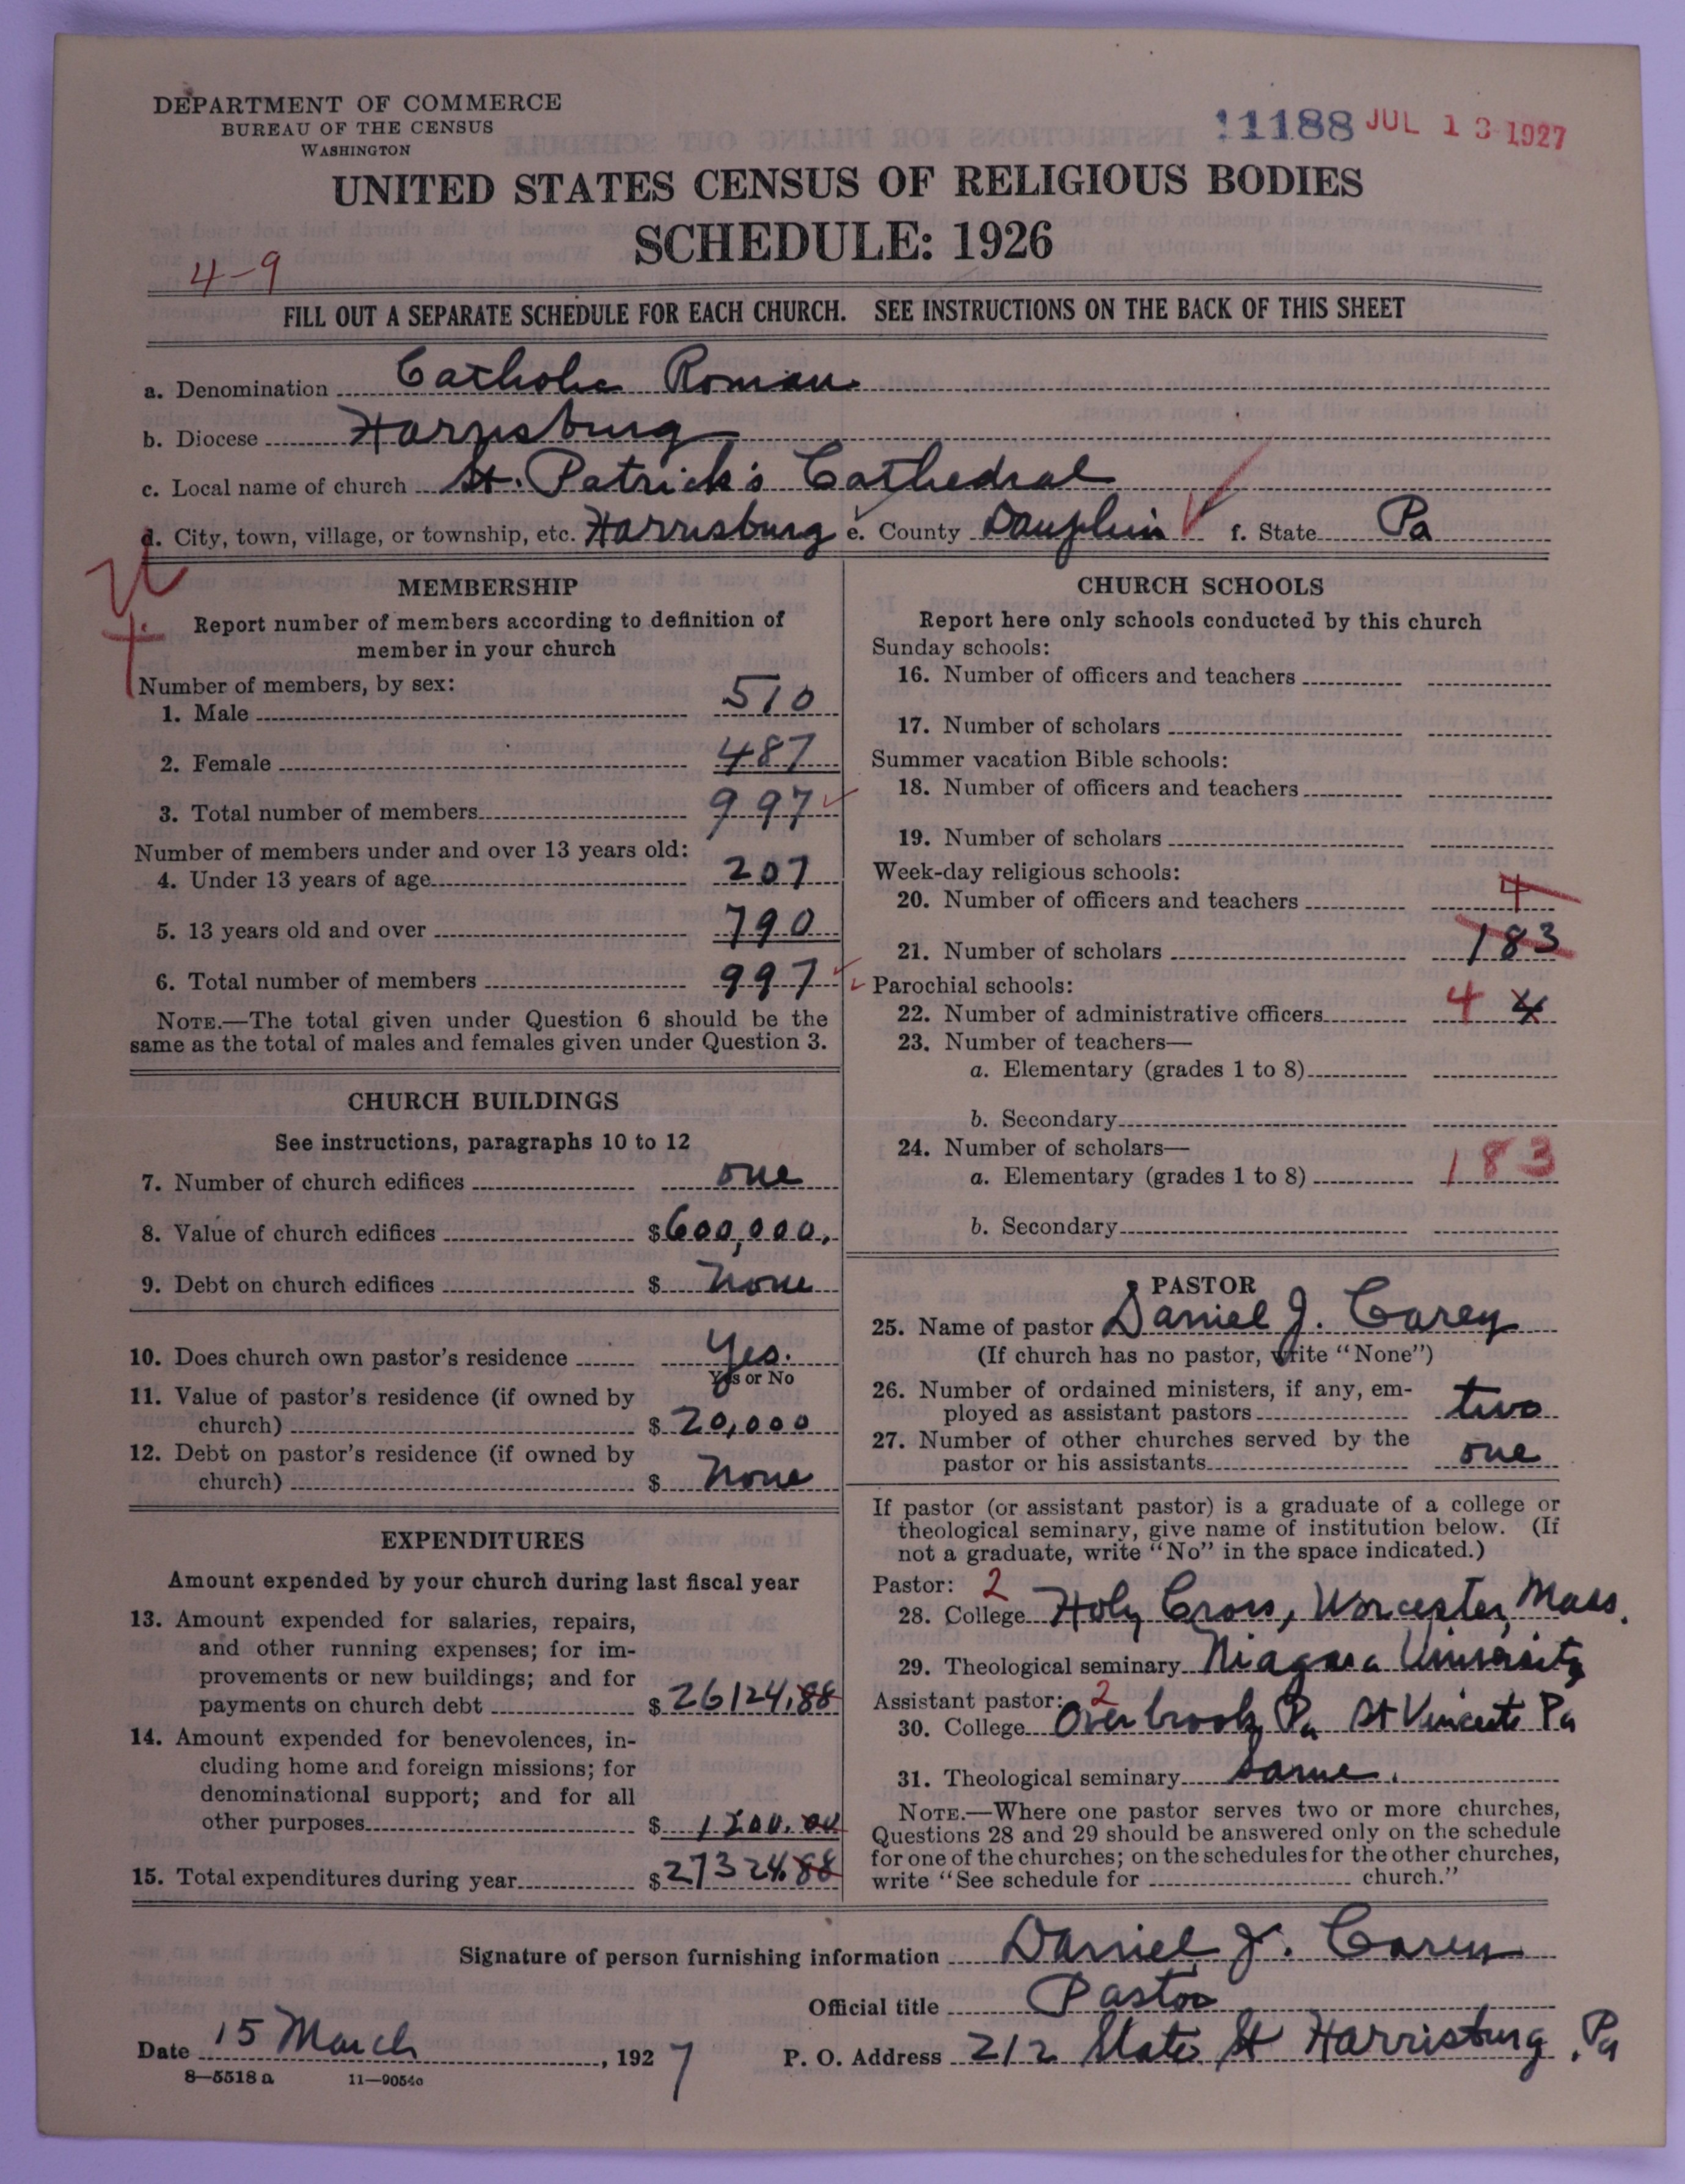 DEPARTMENT OF COMMERCE
BUREAU OF THE CENSUS
WASHINGTON
11188 JUL 13 1927
UNITED STATES CENSUS OF RELIGIOUS BODIES
SCHEDULE: 1926
4-9
FILL OUT A SEPARATE SCHEDULE FOR EACH CHURCH. SEE INSTRUCTIONS ON THE BACK OF THIS SHEET
a. Denomination Catholic Roman
b. Diocese Harrisburg
c. Local name of church St. Patrick's Cathedral
d. City, town, village, or township, etc. Harrisburg e. County Dauphin f. State Pa
MEMBERSHIP
Report number of members according to definition of
member in your church
Number of members, by sex:
1. Male 510
2. Female 487
3. Total number of members 997
Number of members under and over 13 years old:
4. Under 13 years of age 207
5. 13 years old and over 790
6. Total number of members 997
NOTE.—The total given under Question 6 should be the
same as the total of males and females given under Question 3.
CHURCH BUILDINGS
See instructions, paragraphs 10 to 12
7. Number of church edifices one
8. Value of church edifices $600,000.
9. Debt on church edifices $ none
10. Does church own pastor's residence Yes.
Yes or No
11. Value of pastor's residence (if owned by
church) $20,000
12. Debt on pastor's residence (if owned by
church) $ none
EXPENDITURES
Amount expended by your church during last fiscal year
13. Amount expended for salaries, repairs,
and other running expenses; for im-
provements or new buildings; and for
payments on church debt $26124.88
14. Amount expended for benevolences, in-
cluding home and foreign missions; for
denominational support; and for all
other purposes $1200.00
15. Total expenditures during year $27324.88
CHURCH SCHOOLS
Report here only schools conducted by this church
Sunday schools:
16. Number of officers and teachers
17. Number of scholars
Summer vacation Bible schools:
18. Number of officers and teachers
19. Number of scholars
Week-day religious schools:
20. Number of officers and teachers 4
21. Number of scholars 183
Parochial schools:
22. Number of administrative officers 4 4
23. Number of teachers—
a. Elementary (grades 1 to 8)
b. Secondary
24. Number of scholars—
a. Elementary (grades 1 to 8) 183
b. Secondary
PASTOR
25. Name of pastor Daniel J. Carey
(If church has no pastor, write "None")
26. Number of ordained ministers, if any, em-
ployed as assistant pastors two
27. Number of other churches served by the
pastor or his assistants one
If pastor (or assistant pastor) is a graduate of a college or
theological seminary, give name of institution below. (If
not a graduate, write "No" in the space indicated.)
Pastor: 2
28. College Holy Cross, Worcester, Mass.
29. Theological seminary Niagara University
Assistant pastor: 2
30. College Overbrook Pa St Vincents Pa
31. Theological seminary Same.
NOTE.—Where one pastor serves two or more churches,
Questions 28 and 29 should be answered only on the schedule
for one of the churches; on the schedules for the other churches,
write "See schedule for church."
Signature of person furnishing information Daniel J. Carey
Official title Pastor
Date 15 March, 1927
P. O. Address 212 State St Harrisburg, Pa
8—5518 a 11—9054c